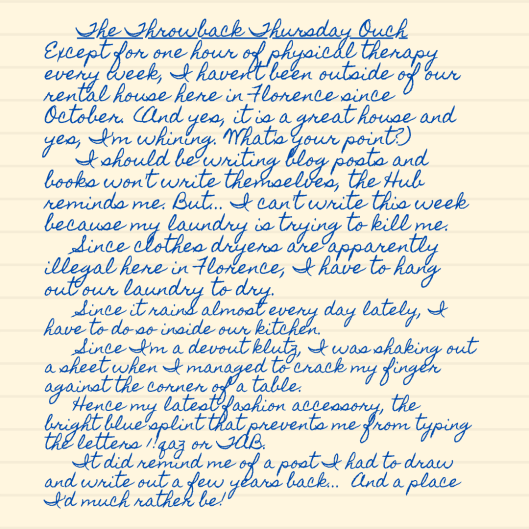 The Throwback Thursday Ouch
Except for one hour of physical therapy
every week, I haven't been outside of our
rental house here in Florence since
October. (And yes, it is a great house and
yes, I'm whining. What's your point?)
I should be writing blog posts and
books won't write themselves, the Hub
reminds me. But... I can't write this week
because my laundry is trying to kill me.
Since clothes dryers are apparently
illegal here in Florence, I have to hang
out our laundry to dry.
Since it rains almost every day lately, I
have to do so inside our kitchen.
Since I'm a devout klutz, I was shaking out
a sheet when I managed to crack my finger
against the corner of a table.
Hence my latest fashion accessory, the
bright blue splint that prevents me from typing
the letters 1!qaz or TAB.
It did remind me of a post I had to draw
and write out a few years back... And a place
I'd much rather be!